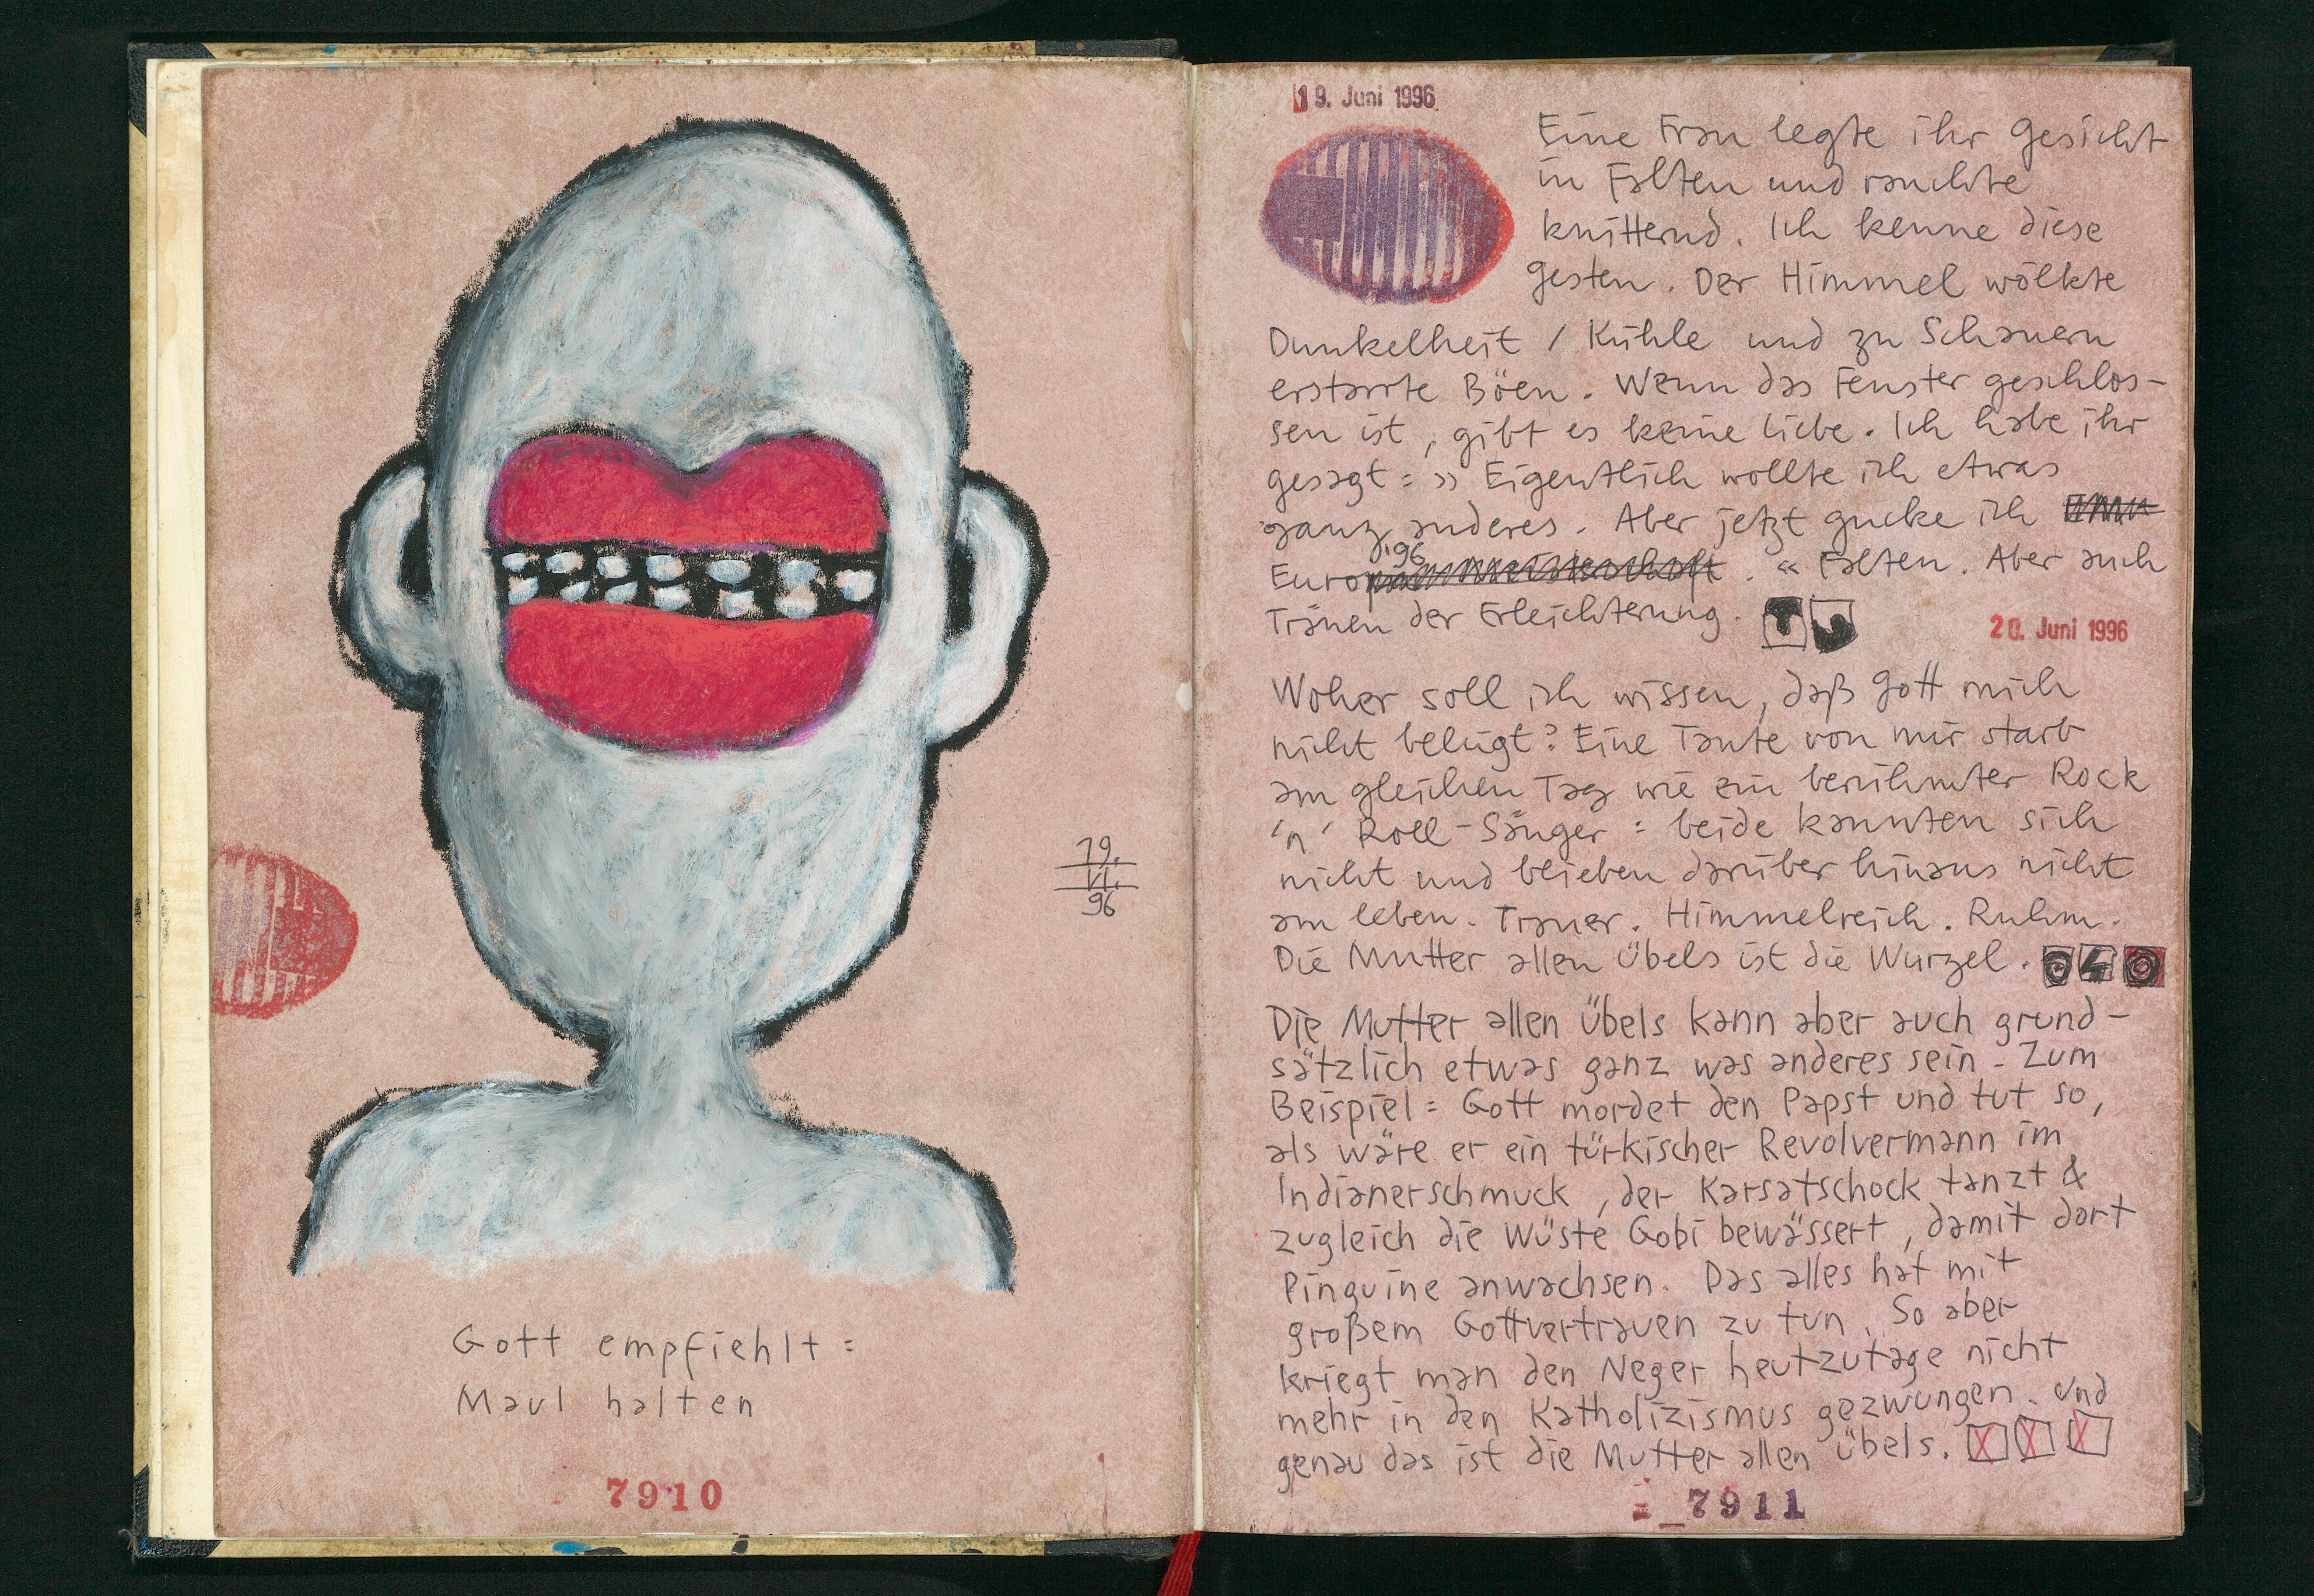 19.
VI.
96
Gott empfiehlt:
Maul halten
7910
19. Juni 1996
Eine Frau legte ihr Gesicht
in Falten und rauchte
knitternd. Ich kenne diese
Gesten. Der Himmel wölkte
Dunkelheit / Kühle und zu Schauern
erstarrte Böen. Wenn das Fenster geschlos-
sen ist, gibt es keine Liebe. Ich habe ihr
gesagt: » Eigentlich wollte ich etwas
ganz anderes. Aber jetzt gucke ich
Euro '96. « Falten. Aber auch
Tränen der Erleichterung.
20. Juni 1996
Woher soll ich wissen, daß Gott mich
nicht belügt? Eine Tante von mir starb
am gleichen Tag wie ein berühmter Rock
'n' Roll-Sänger: beide kannten sich
nicht und blieben darüber hinaus nicht
am Leben. Trauer. Himmelreich. Ruhm.
Die Mutter allen Übels ist die Wurzel.
Die Mutter allen Übels kann aber auch grund-
sätzlich etwas ganz was anderes sein. Zum
Beispiel: Gott mordet den Papst und tut so,
als wäre er ein türkischer Revolvermann im
Indianerschmuck, der Karsatschock tanzt &
zugleich die Wüste Gobi bewässert, damit dort
Pinguine anwachsen. Das alles hat mit
großem Gottvertrauen zu tun. So aber
kriegt man den Neger heutzutage nicht
mehr in den Katholizismus gezwungen. Und
genau das ist die Mutter allen Übels.
7911